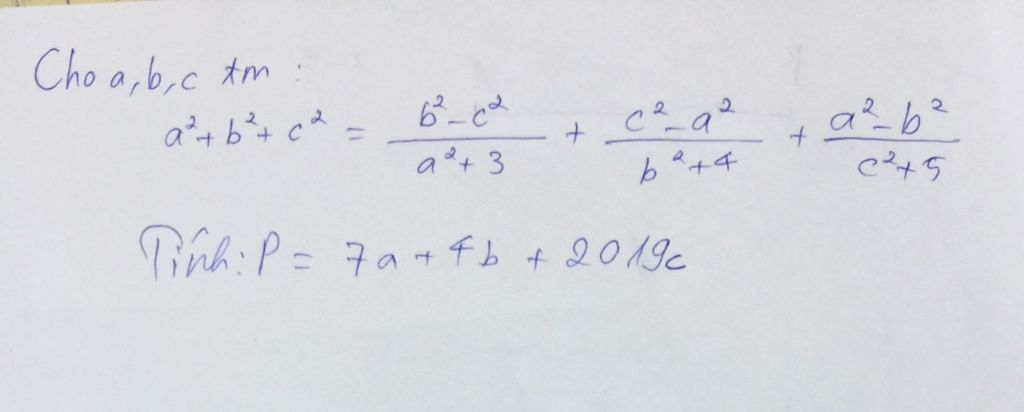 Cho a,b,c tm :
a²+ b²+ c² = b²-c²/a²+3 + c²-a²/b²+4 + a²-b²/c²+5
Tính: P = 7a + 4b + 2019c